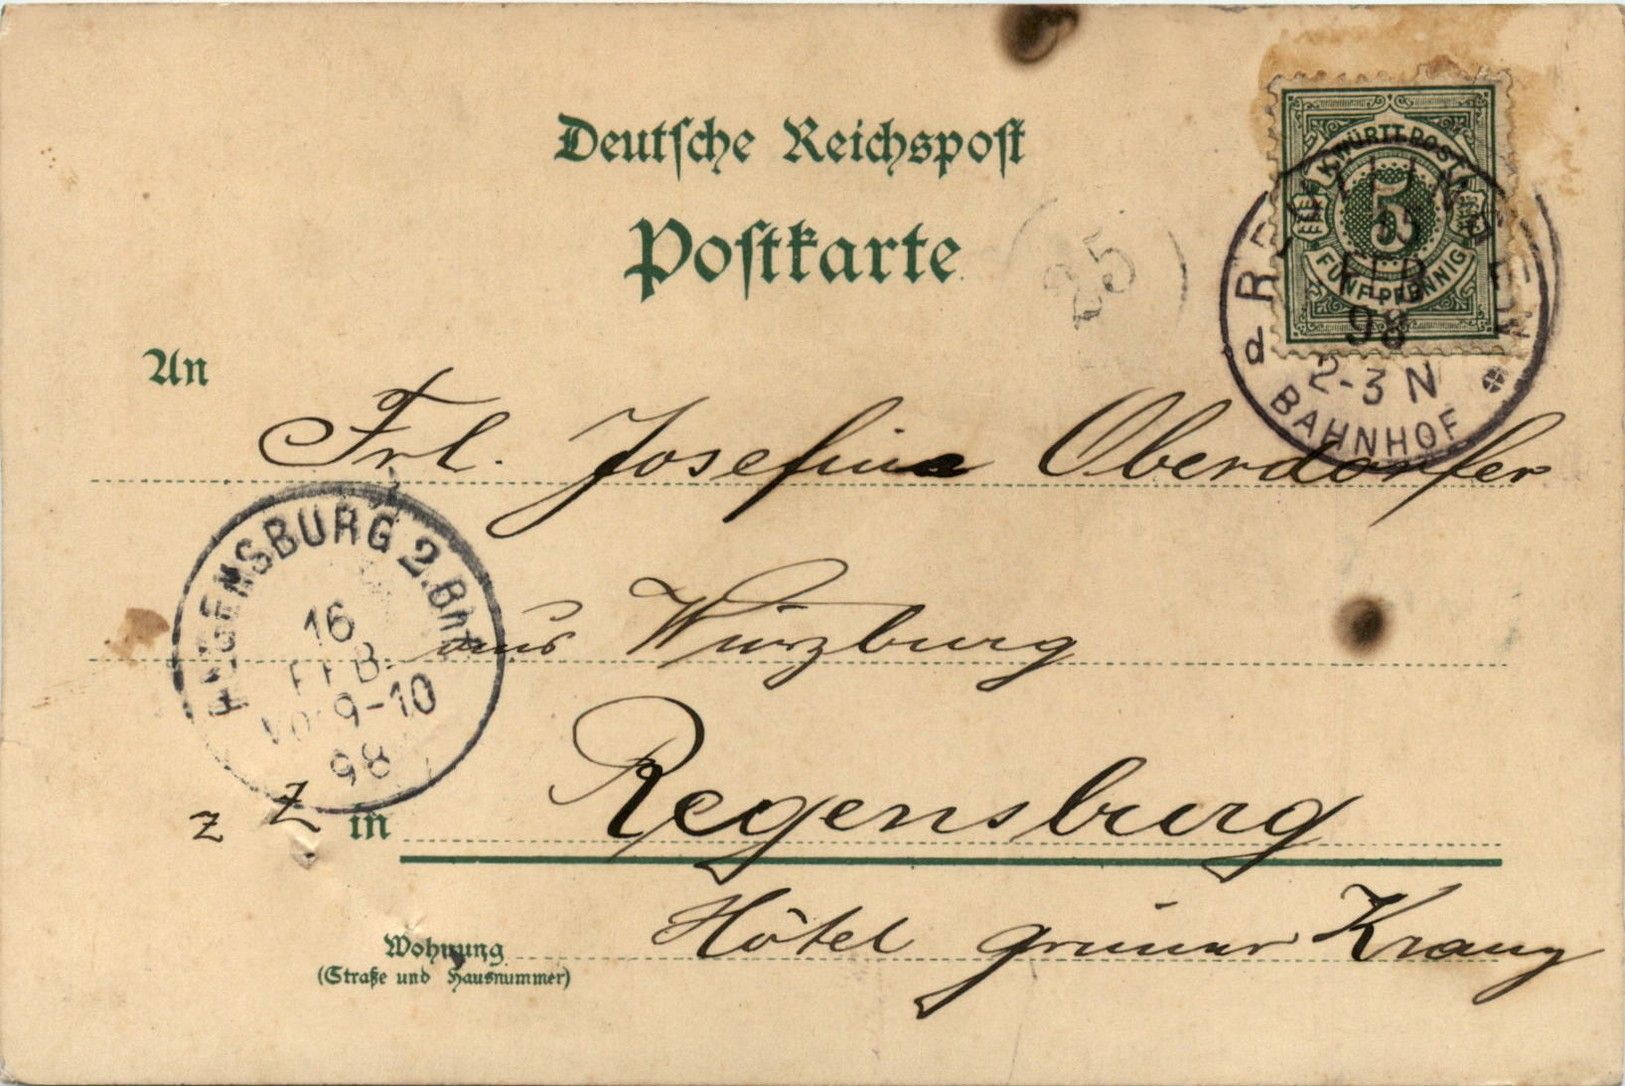 Deutsche Reichspost
Postkarte
K. WÜRTT. POST
5
FÜNF PFENNIG
REUTLINGEN
15
FEB
98
2-3 N
d BAHNHOF
25
An
Frl. Josefine Oberdorfer
REGENSBURG 2. Bhf
16
FEB.
Vo 9-10
98
aus Würzburg
z Z in Regensburg
Hôtel grüner Kranz
Wohnung
(Straße und Hausnummer)